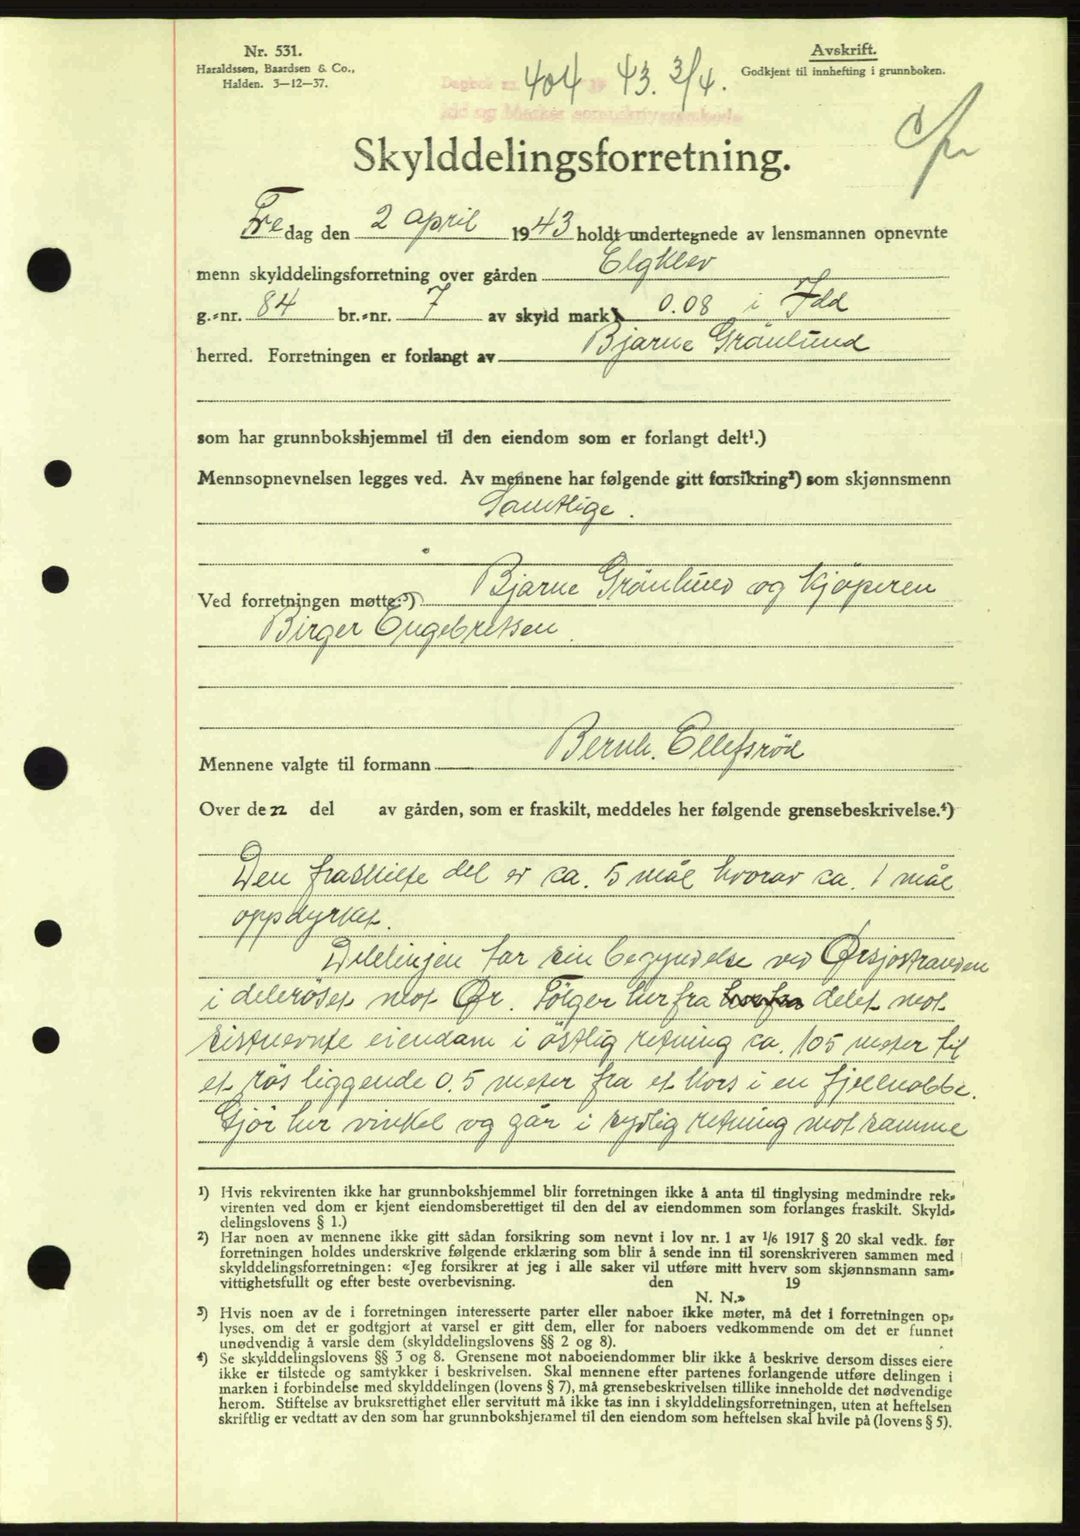 Nr. 531.
Haraldssen, Baardsen & Co.,
Halden. 3—12—37.
Avskrift.
Godkjent til innhefting i grunnboken.
Dagbok nr. 404 19 43. 3/4.
Idd og Marker sorenskriverembede
Skylddelingsforretning.
Fredag den 2 april 1943 holdt undertegnede av lensmannen opnevnte
menn skylddelingsforretning over gården Elgklev
g.-nr. 84 br.-nr. 7 av skyld mark 0.08 i Idd
herred. Forretningen er forlangt av Bjarne Grönlund
som har grunnbokshjemmel til den eiendom som er forlangt delt¹.)
Mennsopnevnelsen legges ved. Av mennene har følgende gitt forsikring²) som skjønnsmenn
Samtlige.
Ved forretningen møtte:³) Bjarne Grönlund og kjöperen
Birger Engebretsen.
Mennene valgte til formann Bernh. Ellefsröd
Over den del av gården, som er fraskilt, meddeles her følgende grensebeskrivelse.⁴)
Den fraskilte del er ca. 5 mål hvorav ca. 1 mål
oppdyrket.
Delelinjen tar sin begyndelse ved Ørsjostranden
i deleröset mot Ør. Fölger herfra herfra delet mot
sistnevnte eiendom i östlig retning ca. 105 meter til
et rös liggende 0.5 meter fra et kors i en fjellnabbe.
Gjör her vinkel og går i sydlig retning mot samme
¹) Hvis rekvirenten ikke har grunnbokshjemmel blir forretningen ikke å anta til tinglysing medmindre rek-
virenten ved dom er kjent eiendomsberettiget til den del av eiendommen som forlanges fraskilt. Skyld-
delingslovens § 1.)
²) Har noen av mennene ikke gitt sådan forsikring som nevnt i lov nr. 1 av 1/6 1917 § 20 skal vedk. før
forretningen holdes underskrive følgende erklæring som blir å sende inn til sorenskriveren sammen med
skylddelingsforretningen: «Jeg forsikrer at jeg i alle saker vil utføre mitt hverv som skjønnsmann sam-
vittighetsfullt og efter beste overbevisning. den 19
N. N.»
³) Hvis noen av de i forretningen interesserte parter eller naboer ikke møter, må det i forretningen op-
lyses, om det er godtgjort at varsel er gitt dem, eller for naboers vedkommende om det er funnet
unødvendig å varsle dem (skylddelingslovens §§ 2 og 8).
⁴) Se skylddelingslovens §§ 3 og 8. Grensene mot naboeiendommer blir ikke å beskrive dersom disses eiere
ikke er tilstede og samtykker i beskrivelsen. Skal mennene efter partenes forlangende utføre delingen i
marken i forbindelse med skylddelingen (lovens § 7), må grensebeskrivelsen tillike inneholde det nødvendige
herom. Stiftelse av bruksrettighet eller servitutt må ikke tas inn i skylddelingsforretningen, uten at heftelsen
skriftlig er vedtatt av den som har grunnbokshjemmel til den eiendom som heftelsen skal hvile på (lovens § 5).